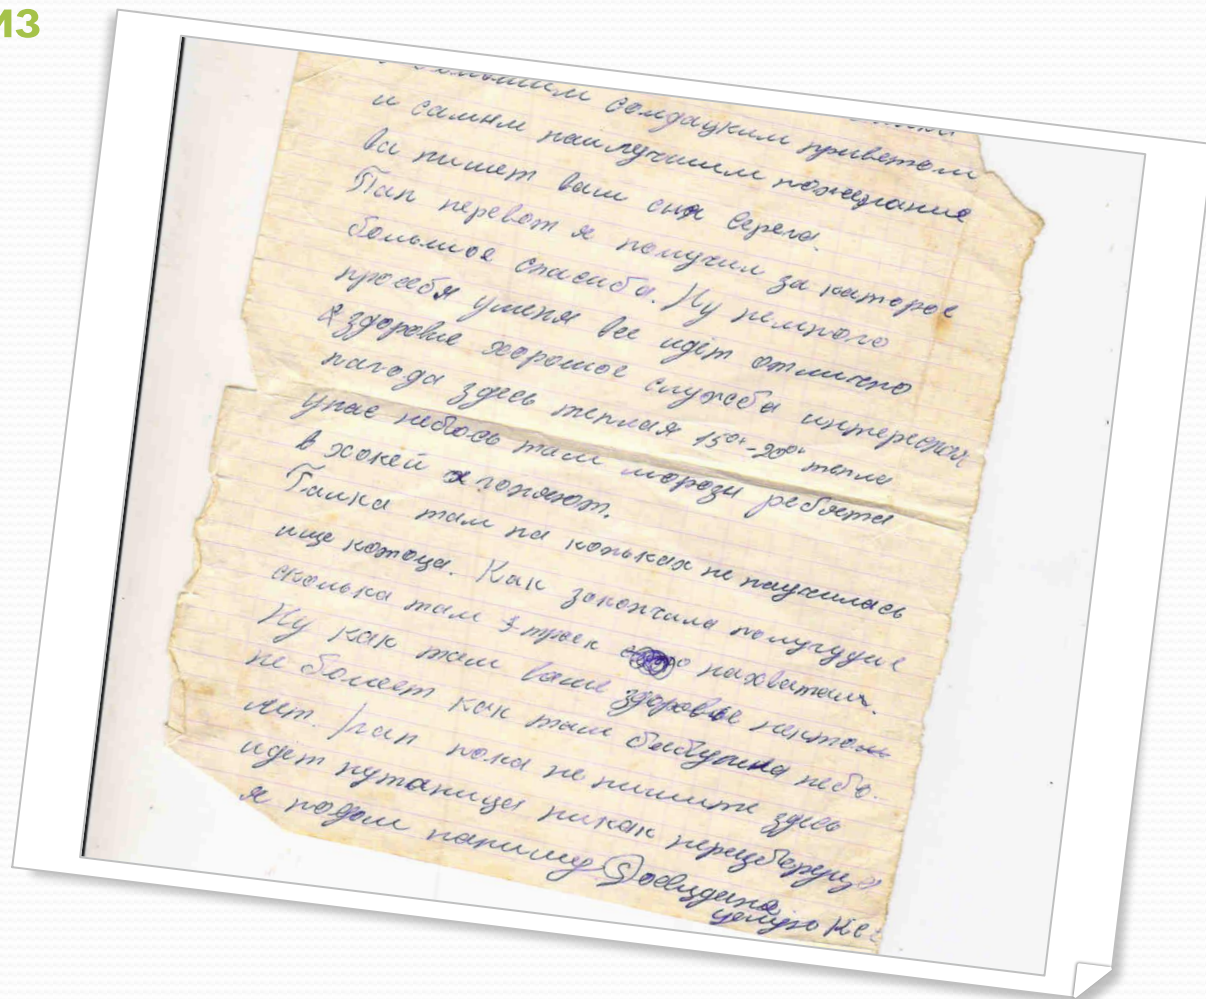 ИЗ
солдацким приветом
и самым наилучшим пожелание
ва пишет ваш сын Серега.
Пап перевот я получил за каторое
большое спасиба. Ну немного
просебя уменя все идёт отлично
здоровие хорошое служеба интересная
пагода здесь теплая 15°-20° тепла
унас небось там морозы ребята
в хокей гоняют.
Галка там на коньках не научилась
ище
Как закончила полугудие
сколька там 3-троек нахватали.
Ну как там ваше здоровье некто
не болеет как там бабушка небо.
лет. Пап пока не пишите здесь
идёт путаница никак
я подом напишу Досвидания
целую